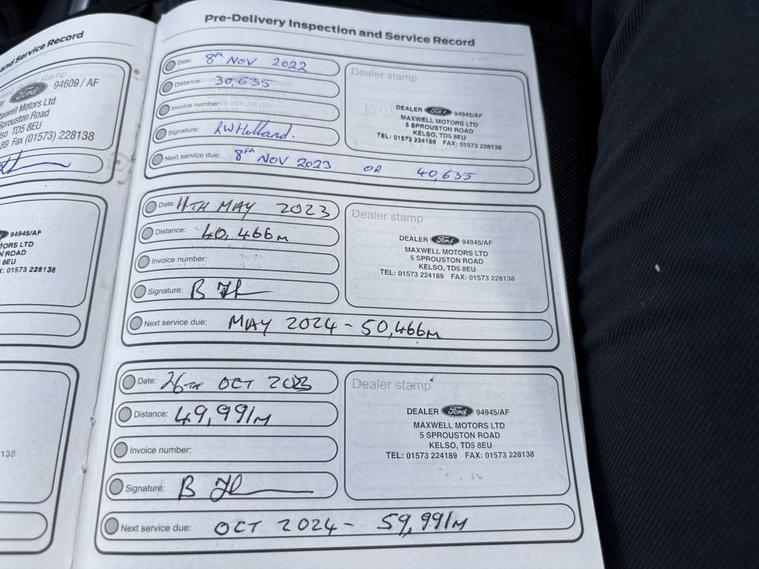 and Service Record
stamp
Ford 94609 / AF
Maxwell Motors Ltd
Sprouston Road
Kelso TD5 8EU
189 Fax (01573) 228138
94945/AF
TORS LTD
N ROAD
8EU
X: 01573 228138
138
Pre-Delivery Inspection and Service Record
Date: 8th NOV 2022
Distance: 30,635
Invoice number:
Signature: RW Holland.
Next service due: 8th NOV 2023 OR 40,635
Dealer stamp
DEALER Ford 94945/AF
MAXWELL MOTORS LTD
5 SPROUSTON ROAD
KELSO, TD5 8EU
TEL: 01573 224189 FAX: 01573 228138
Date: 11TH MAY 2023
Distance: 40,466M
Invoice number:
Signature: B
Next service due: MAY 2024 - 50,466M
Dealer stamp
DEALER Ford 94945/AF
MAXWELL MOTORS LTD
5 SPROUSTON ROAD
KELSO, TD5 8EU
TEL: 01573 224189 FAX: 01573 228138
Date: 26TH OCT 2023
Distance: 49,991M
Invoice number:
Signature: B
Next service due: OCT 2024 - 59,991M
Dealer stamp
DEALER Ford 94945/AF
MAXWELL MOTORS LTD
5 SPROUSTON ROAD
KELSO, TD5 8EU
TEL: 01573 224189 FAX: 01573 228138